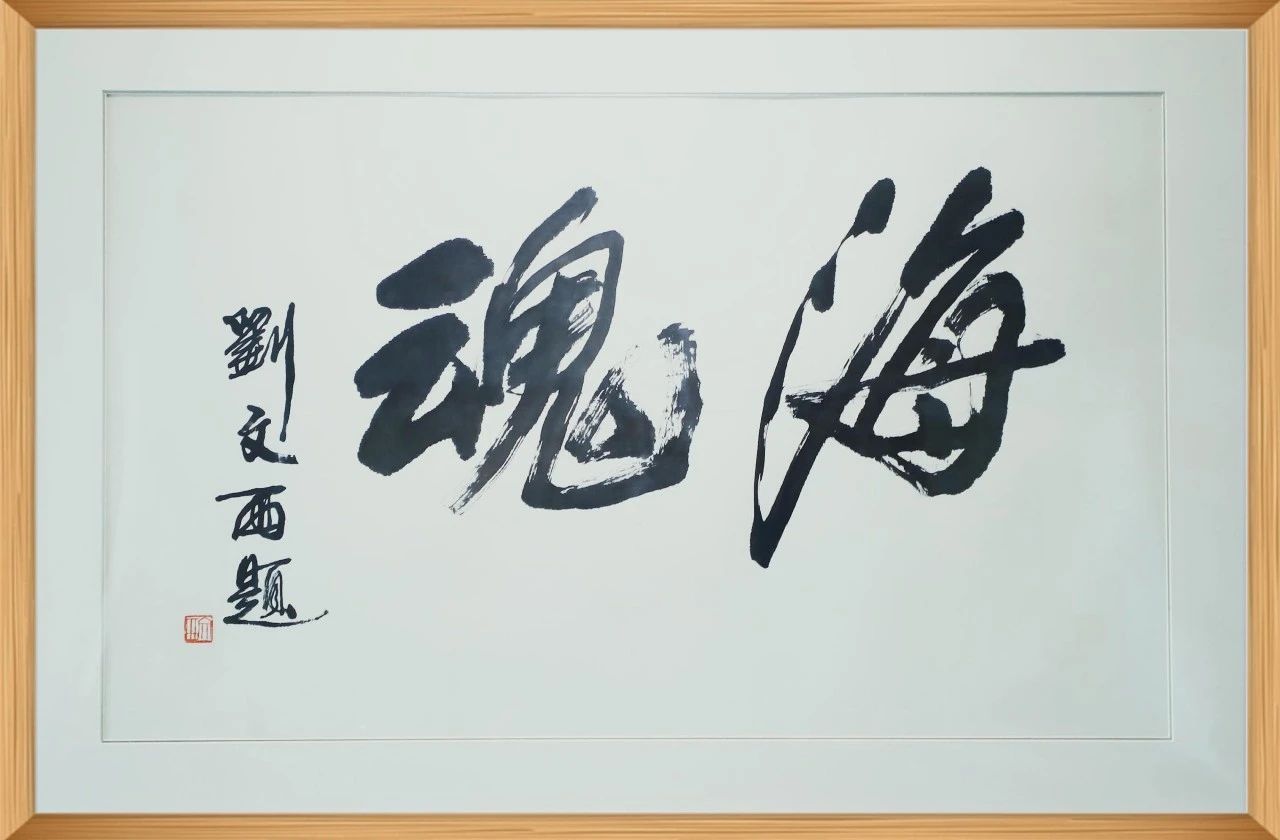 海魂
劉文西題